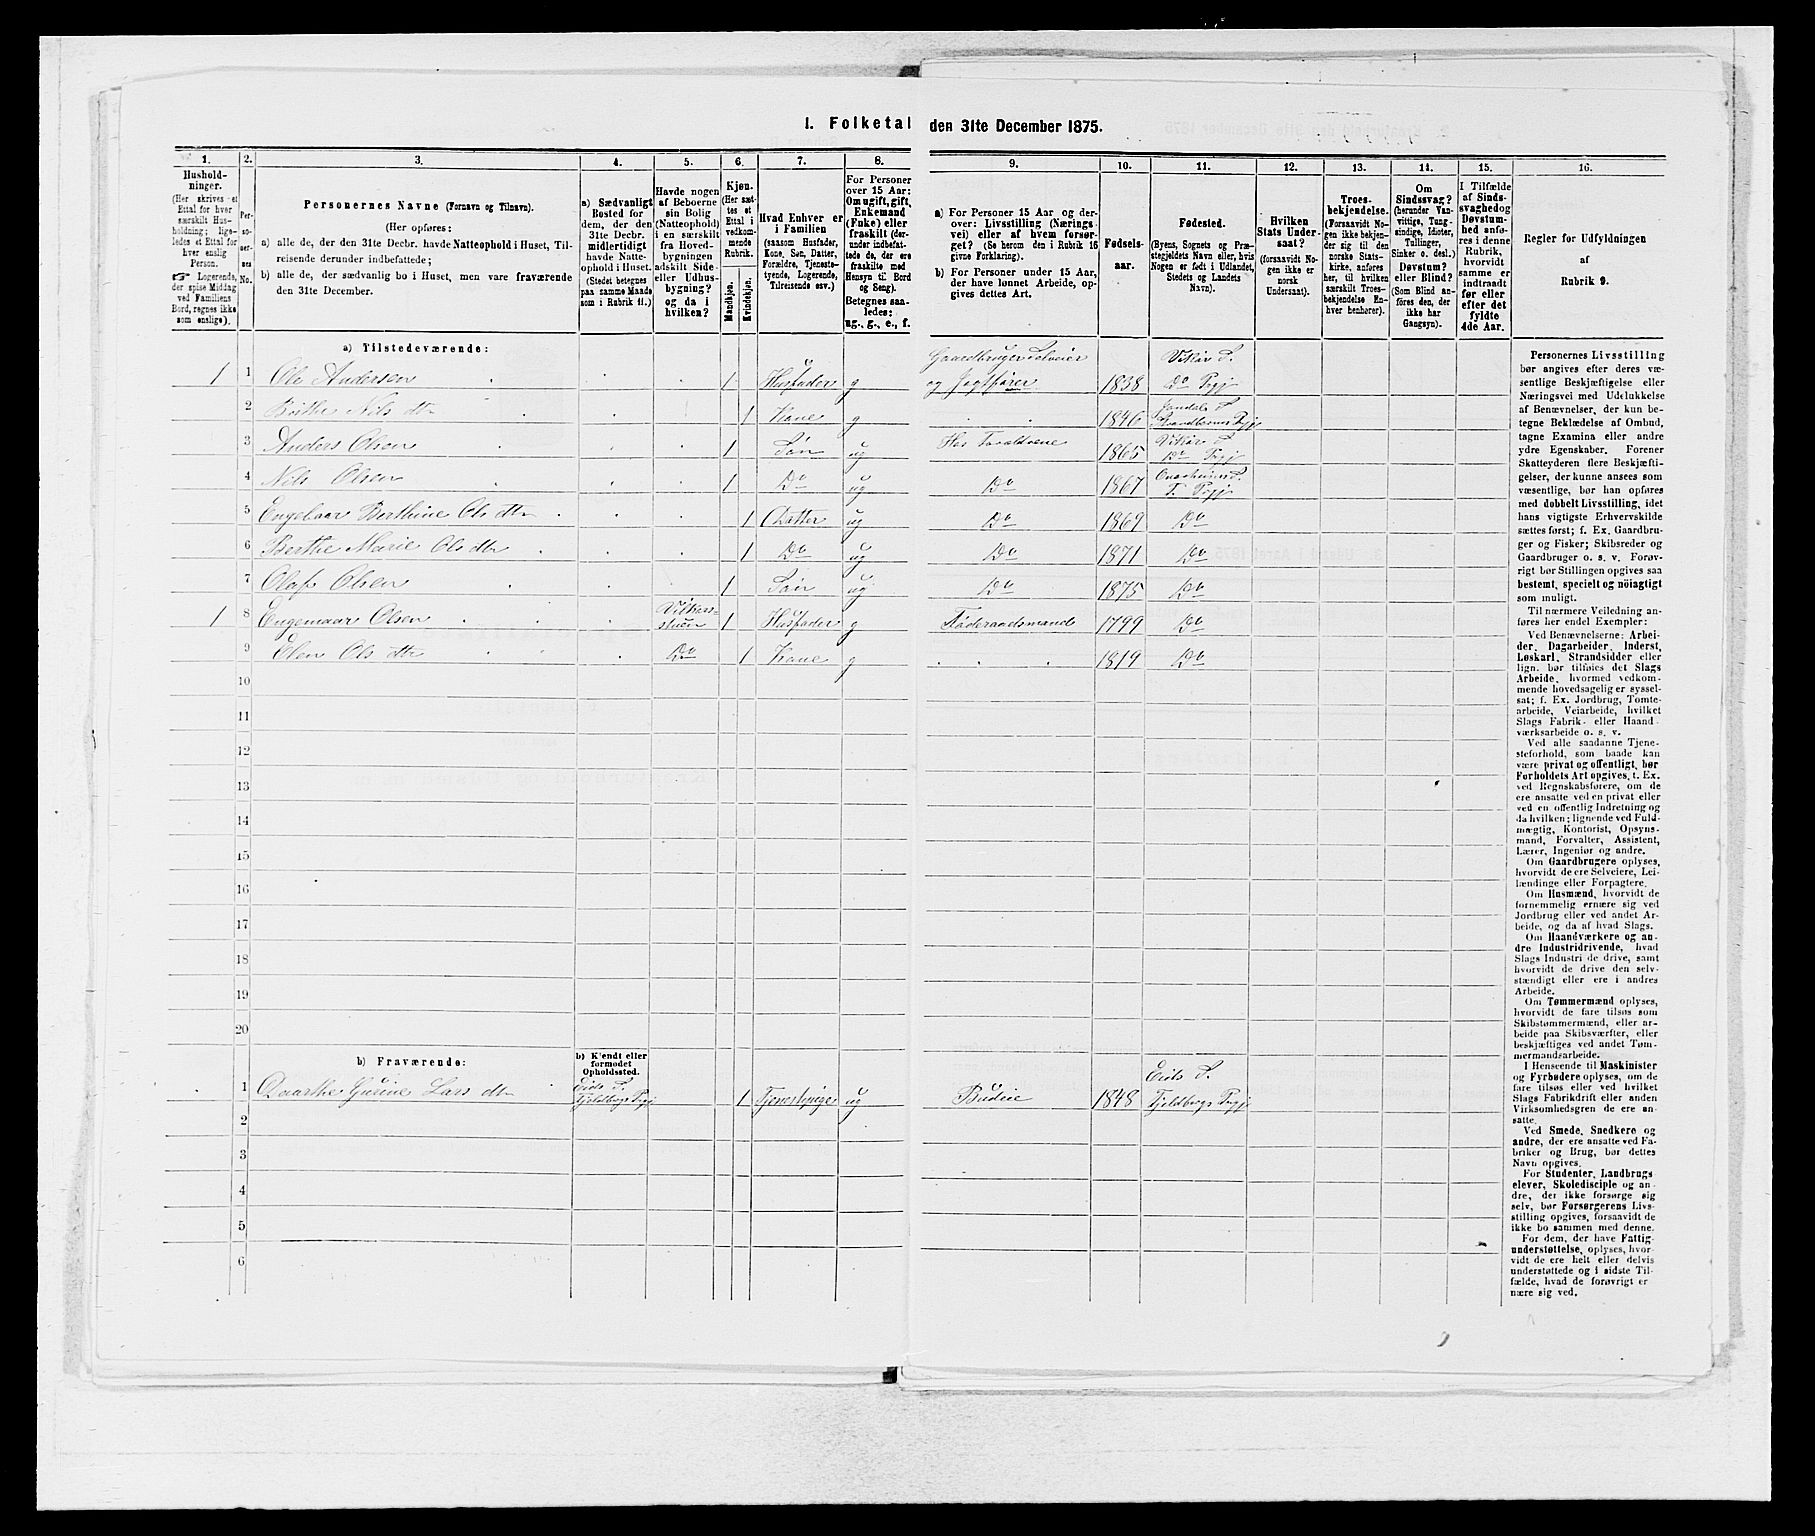 I. Folketal den 31te December 1875.
1. 2. 3. 4. 5. 6. 7. 8. 9. 10. 11. 12. 13. 14. 15. 16.
Hushold-
ninger.
(Her skrives et
Ettal for hver
særskilt Hus-
holdning; lige-
ledes et Ettal for
hver enslig
Person.
☞ Logerende,
der spise Middag
ved Familiens
Bord, regnes ikke
som enslige).
Per-
so-
ner-
nes
No.
Personernes Navne (Fornavn og Tilnavn).
(Her opføres:
a) alle de, der den 31te Decbr. havde Natteophold i Huset, Til-
reisende derunder indbefattede;
b) alle de, der sædvanlig bo i Huset, men vare fraværende
den 31te December.
a) Sædvanligt
Bosted for
dem, der den
31te Decbr.
midlertidigt
havde Natte-
ophold i Huset.
(Stedet betegnes
paa samme Maade
som i Rubrik 11.)
Havde nogen
af Beboerne
sin Bolig
(Natteophold)
i en særskilt
fra Hoved-
bygningen
adskilt Side-
eller Udhus-
bygning?
og da i
hvilken?
Kjøn.
(Her sæt-
tes et
Ettal i
vedkom-
mende
Rubrik.
Mandkjøn.
Kvindekjøn.
Hvad Enhver er
i Familien
(saasom Husfader,
Kone, Søn, Datter,
Forældre, Tjeneste-
tyende, Logerende,
Tilreisende osv.)
For Personer
over 15 Aar:
Om ugift, gift,
Enkemand
(Enke) eller
fraskilt (der-
under indbefat-
tede de, der ere
fraskilte med
Hensyn til Bord
og Seng).
Betegnes saa-
ledes:
ug., g., e., f.
a) For Personer 15 Aar og der-
over: Livsstilling (Nærings-
vei) eller af hvem forsør-
get? (Se herom den i Rubrik 16
givne Forklaring).
b) For Personer under 15 Aar,
der have lønnet Arbeide, op-
gives dettes Art.
Fødsels-
aar.
Fødested.
(Byens, Sognets og Præ-
stegjeldets Navn eller, hvis
Nogen er født i Udlandet,
Stedets og Landets
Navn).
Hvilken
Stats Under-
saat?
(forsaavidt No-
gen ikke er
norsk
Undersaat).
Troes-
bekjendelse.
(Forsaavidt No-
gen ikke bekjen-
der sig til den
norske Stats-
kirke, anføres
her, til hvilken
særskilt Troes-
bekjendelse En-
hver henhører).
Om
Sindssvag?
(herunder Van-
vittige, Tung-
sindige, Idioter,
Tullinger,
Sinker o. desl.)
Døvstum?
eller Blind?
(Som Blind an-
føres den, der
ikke har
Gangsyn).
I Tilfælde
af Sinds-
svaghed og
Døvstum-
hed anfø-
res i denne
Rubrik,
hvorvidt
samme er
indtraadt
før eller
efter det
fyldte
4de Aar.
Regler for Udfyldningen
af
Rubrik 9.
a) Tilstedeværende:
Gaardbruger Selveier Vikør S.
1 1 Ole Andersen 1 Husfader g og Jagtfører 1838 Do Prgj
2 Brithe Nils dtr 1 Kone g 1846 Jondals S. Strandebarms Prgj
3 Anders Olsen 1 Søn ug Hos Forældrene 1865 Vikør S. Do Prgj
4 Nils Olsen 1 Do ug Do 1867
5 Engeboar Berthine Ols dtr 1 Datter ug Do 1869 Do
6 Berthe Marie Ols dtr 1 Do ug Do 1871 Do
7 Olaf Olsen 1 Søn ug Do 1875 Do
1 8 Engemaar Olsen 1 Husfader g Føderaadsmand 1799 Do
9 Elen Ols dtr Do 1 Kone g 1819 Do
10
11
12
13
14
15
16
17
18
19
20
b) Fraværende:
b) Kjendt eller
formodet
Opholdssted.
Eids S. Eids S.
1 Gurine Lars dtr Fjeldbergs Prgj 1 Tjenestepige ug Budeie 1848 Fjeldbergs Prgj
2
3
4
5
6
Personernes Livsstilling
bør angives efter deres væ-
sentlige Beskjæftigelse eller
Næringsvei med Udelukkelse
af Benævnelser, der kun be-
tegne Beklædelse af Ombud,
tagne Examina eller andre
ydre Egenskaber. Forener
Skatteyderen flere Beskjæfti-
gelser, der kunne ansees som
væsentlige, bør han opføres
med dobbelt Livsstilling, idet
hans vigtigste Erhvervskilde
sættes først; f. Ex. Gaardbru-
ger og Fisker; Skibsreder og
Gaardbruger o. s. v. Forøv-
rigt bør Stillingen opgives saa
bestemt, specielt og nöiagtigt
som muligt.
Til nærmere Veiledning an-
føres her endel Exempler:
Ved Benævnelserne: Arbei-
der, Dagarbeider, Inderst,
Løskarl, Strandsidder eller
lign. bør tilføies det Slags
Arbeide, hvormed vedkom-
mende hovedsagelig er syssel-
sat; f. Ex. Jordbrug, Tomte-
arbeide, Veiarbeide, hvilket
Slags Fabrik- eller Haand-
værksarbeide o. s. v.
Ved alle saadanne Tjene-
steforhold, som baade kan
være privat og offentligt, bør
Forholdets Art opgives, t. Ex.
ved Regnskabsførere, om de
ere ansatte ved en privat eller
ved en offentlig Indretning og
da hvilken; lignende ved Fuld-
mægtig, Kontorist, Opsyns-
mand, Forvalter, Assistent,
Lærer, Ingeniør og andre.
Om Gaardbrugere oplyses,
hvorvidt de ere Selveiere, Lei-
lændinge eller Forpagtere.
Om Husmænd, hvorvidt de
fornemmelig ernære sig ved
Jordbrug eller ved andet Ar-
beide, og da af hvad Slags.
Om Haandværkere og an-
dre Industridrivende, hvad
Slags Industri de drive, samt
hvorvidt de drive den selv-
stændigt eller ere i andres
Arbeide.
Om Tømmermænd oplyses,
hvorvidt de fare tilsøs som
Skibstømmermænd, eller ar-
beide paa Skibsværfter, eller
beskjæftiges ved andet Tøm-
mermandsarbeide.
I Henseende til Maskinister
og Fyrbødere oplyses, om de
fare tilsøs eller ved hvilket
Slags Fabrikdrift eller anden
Virksomhedsgren de ere an-
satte.
Ved Smede, Snedkere og
andre, der ere ansatte ved Fa-
briker og Brug, bør dettes
Navn opgives.
For Studenter, Landbrugs-
elever, Skoledisciple og an-
dre, der ikke forsørge sig
selv, bør Forsørgerens Livs-
stilling opgives, forsaavidt de
ikke bo sammen med denne.
For dem, der have Fattig-
understøttelse, oplyses, hvor-
vidt de ere helt eller delvis
understøttede og i sidste Til-
fælde, hvad de forøvrigt er-
nære sig ved.